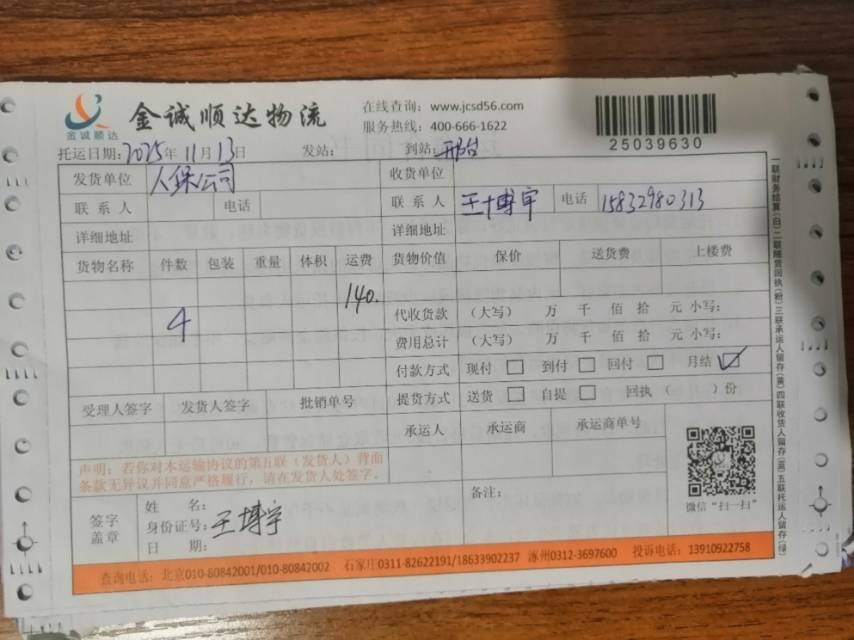 金诚顺达
金诚顺达物流
在线查询：www.jcsd56.com
服务热线：400-666-1622
25039630
托运日期：2025年11月13日 发站： 到站：邢台
发货单位 人保公司 收货单位
联系人 电话 联系人 王博宇 电话 15832980313
详细地址 详细地址
货物名称 件数 包装 重量 体积 运费 货物价值 保价 送货费 上楼费
4 140.
代收货款 （大写） 万 千 佰 拾 元 小写：
费用总计 （大写） 万 千 佰 拾 元 小写：
付款方式 现付 □ 到付 □ 回付 □ 月结 ☑
受理人签字 发货人签字 批销单号 提货方式 送货 □ 自提 □ 回执（ ）份
承运人 承运商 承运商单号
声明：若你对本运输协议的第五联（发货人）背面
条款无异议并同意严格履行，请在发货人处签字。
微信“扫一扫”
签字
盖章
姓 名：
身份证号：王博宇
日 期：
备注：
查询电话：北京010-80842001/010-80842002 石家庄0311-82622191/18633902237 涿州0312-3697600 投诉电话：13910922758
一联财务结算（白）二联随货回执（粉）三联承运人留存（黄）四联收货人留存（蓝）五联托运人留存（绿）